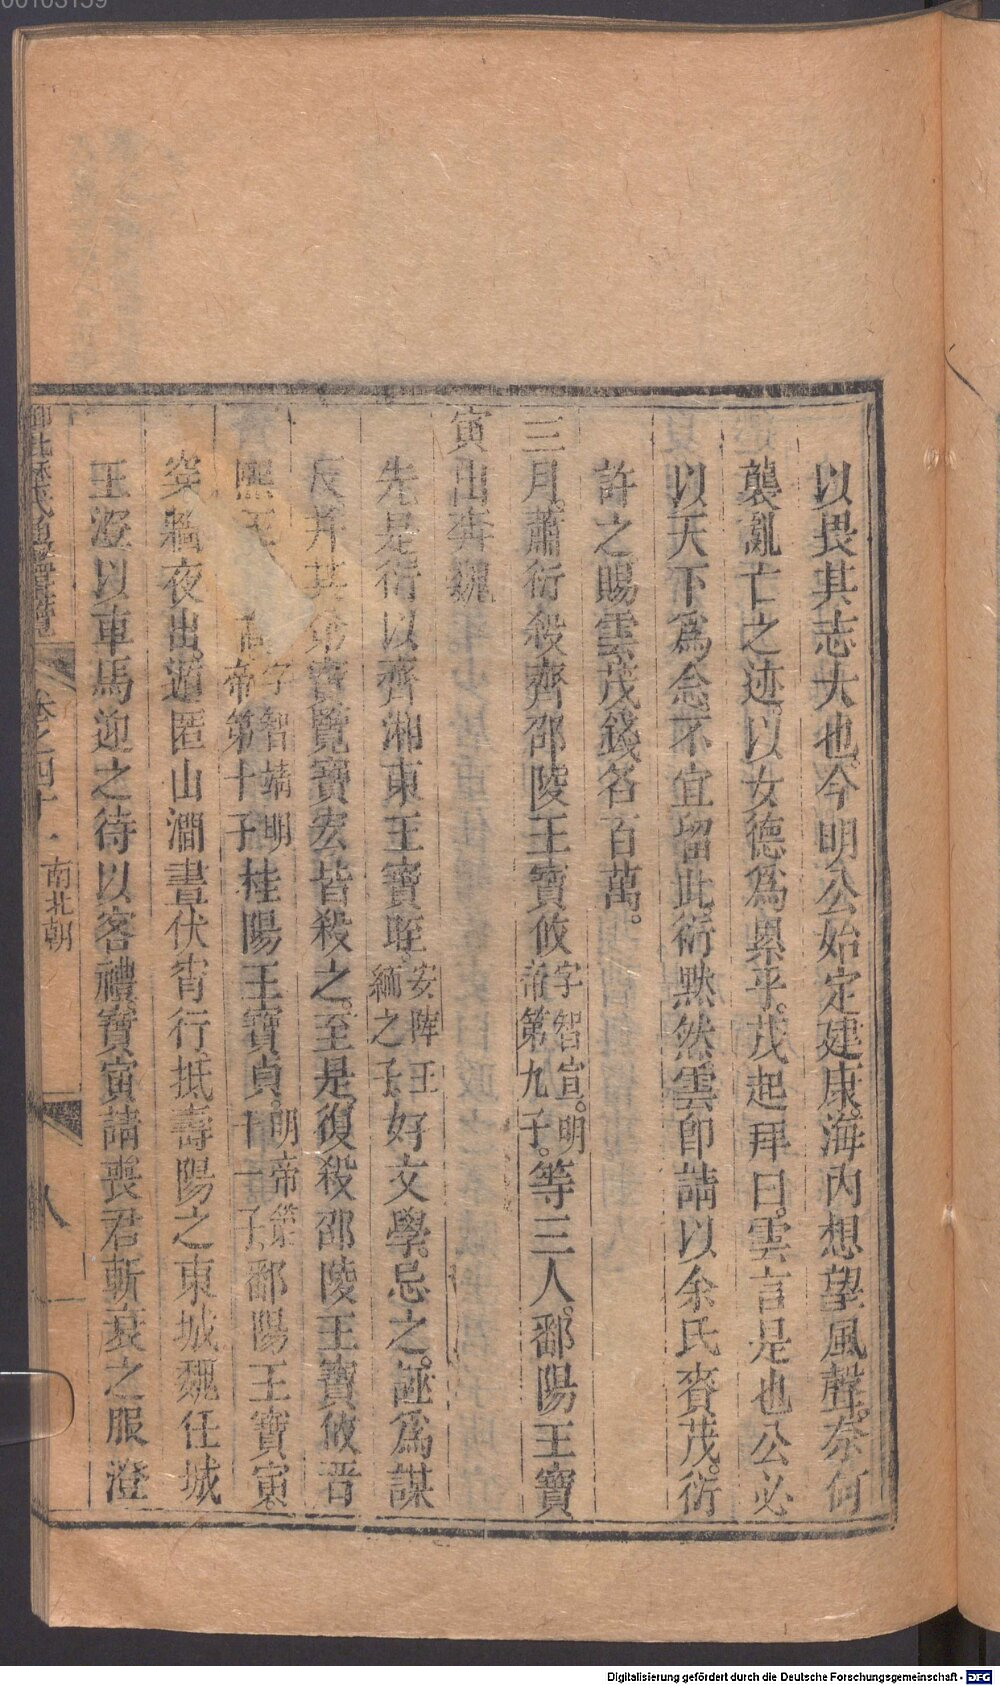 以畏其志大也今明公始定建康海內想望風聲奈何
襲亂亡之迹以女德爲累乎茂起拜曰雲言是也公必
以天下爲念不宜留此衍默然雲卽請以余氏賚茂衍
許之賜雲茂錢各百萬。
三月蕭衍殺齊邵陵王寶攸字智宣。明帝第九子。等三人鄱陽王寶
寅出奔魏
先是衍以齊湘東王寶晊安陸王緬之子好文學忌之誣爲謀
反并其弟寶覽寶宏皆殺之至是復殺邵陵王寶攸晉
熙王字智靖明帝第十子桂陽王寶貞明帝第十一子鄱陽王寶寅
穿牆夜出遁匿山澗晝伏宵行抵壽陽之東城魏任城
王澄以車馬迎之待以客禮寶寅請喪君斬衰之服澄
歷代通鑑輯覽 卷之四十 南北朝 八
Digitalisierung gefördert durch die Deutsche Forschungsgemeinschaft - DFG